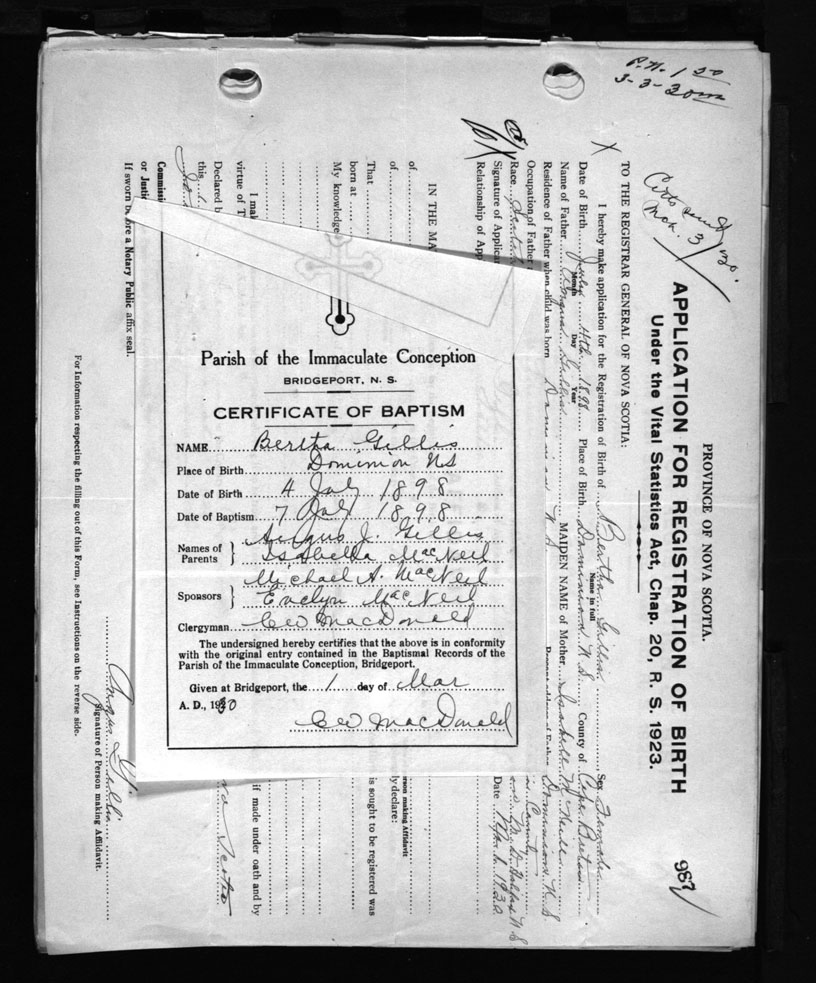 P.N. 1 50
3-3-30
Mch. 3 /30.
PROVINCE OF NOVA SCOTIA.
APPLICATION FOR REGISTRATION OF BIRTH
Under the Vital Statistics Act, Chap. 20, R. S. 1923.
987
TO THE REGISTRAR GENERAL OF NOVA SCOTIA:
I hereby make application for the Registration of Birth of Bertha Gillis Sex Female
Name in full
Date of Birth July 4th 1898 Place of Birth Dominion N.S. County of Cape Breton
Month Day Year
Name of Father Angus Gillis MAIDEN NAME of Mother Isabell McNeil
Residence of Father when child was born Dominion N.S. Dominion N.S.
Occupation of Father
Race
Signature of Applicant
Relationship of App
Date Mch. 1. 1930
IN THE MA
of
of
That
born at
My knowledge
is sought to be registered was
y declare:
rson making Affidavit
I mak
virtue of T
if made under oath and by
Declared b
this 1
Commissi
or Justic
If sworn before a Notary Public affix seal.
Angus Gillis
Signature of Person making Affidavit.
For Information respecting the filling out of this Form, see Instructions on the reverse side.
Parish of the Immaculate Conception
BRIDGEPORT, N. S.
CERTIFICATE OF BAPTISM
NAME Bertha Gillis
Place of Birth Dominion NS
Date of Birth 4 July 1898
Date of Baptism 7 July 1898
Names of Parents } Angus J. Gillis
Isabella MacNeil
Sponsors } Michael A. MacNeil
Evelyn MacNeil
Clergyman CW MacDonald
The undersigned hereby certifies that the above is in conformity
with the original entry contained in the Baptismal Records of the
Parish of the Immaculate Conception, Bridgeport.
Given at Bridgeport, the 1 day of Mar
A. D., 1930
CW MacDonald